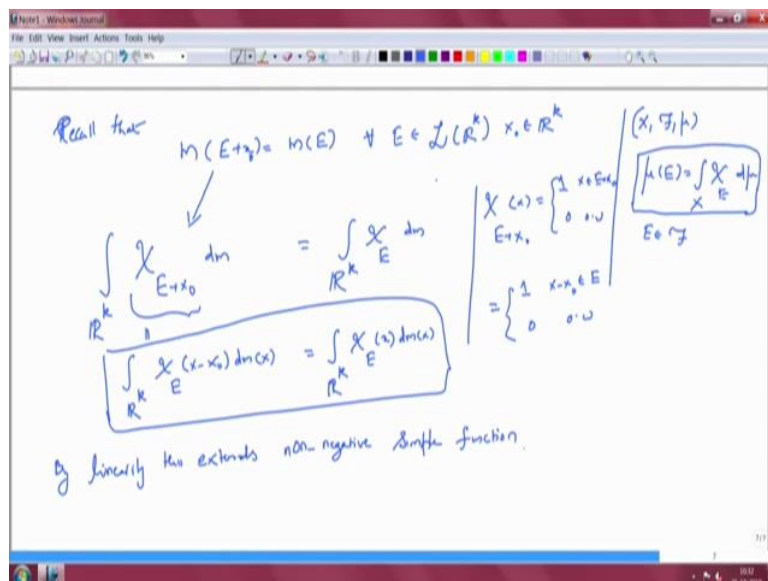 Note1 - Windows Journal
File Edit View Insert Actions Tools Help
Recall that
m(E+x₀) = m(E) ∀ E ∈ ℒ(ℝᵏ) x₀ ∈ ℝᵏ
(X, ℱ, μ)
μ(E) = ∫_X χ_E dμ
E ∈ ℱ
∫_ℝᵏ χ_{E+x₀} dm = ∫_ℝᵏ χ_E dm
χ_{E+x₀}(x) = { 1 x ∈ E+x₀
0 o.w
= { 1 x-x₀ ∈ E
0 o.w
∫_ℝᵏ χ_E(x-x₀) dm(x) = ∫_ℝᵏ χ_E(x) dm(x)
By linearity this extends non-negative simple function.
7/7
7
10:32